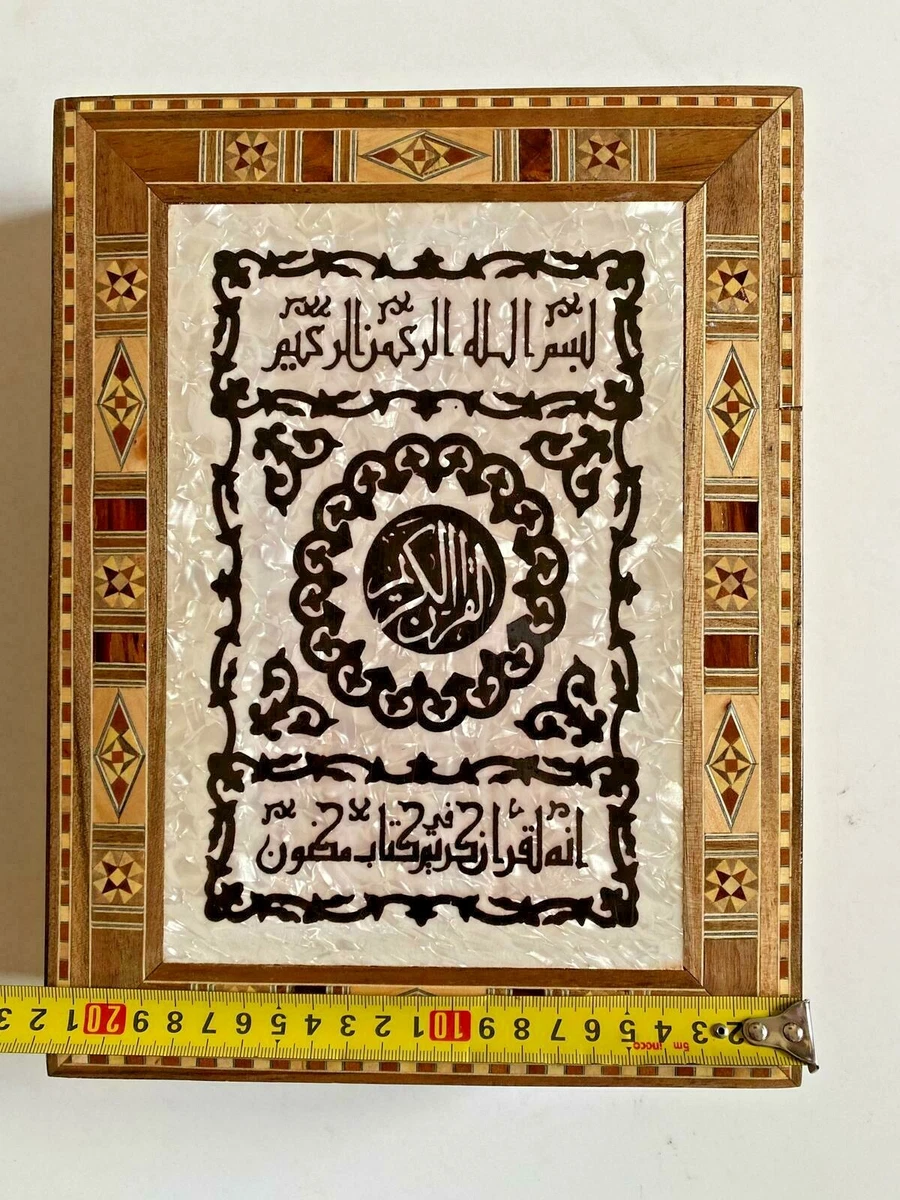 بسم الله الرحمن الرحيم
القرآن الكريم
انه لقرآن كريم في كتاب مكنون
2 3 4 5 6 7 8 9 10 1 2 3 4 5 6 7 8 9 20 1 2 3
5m